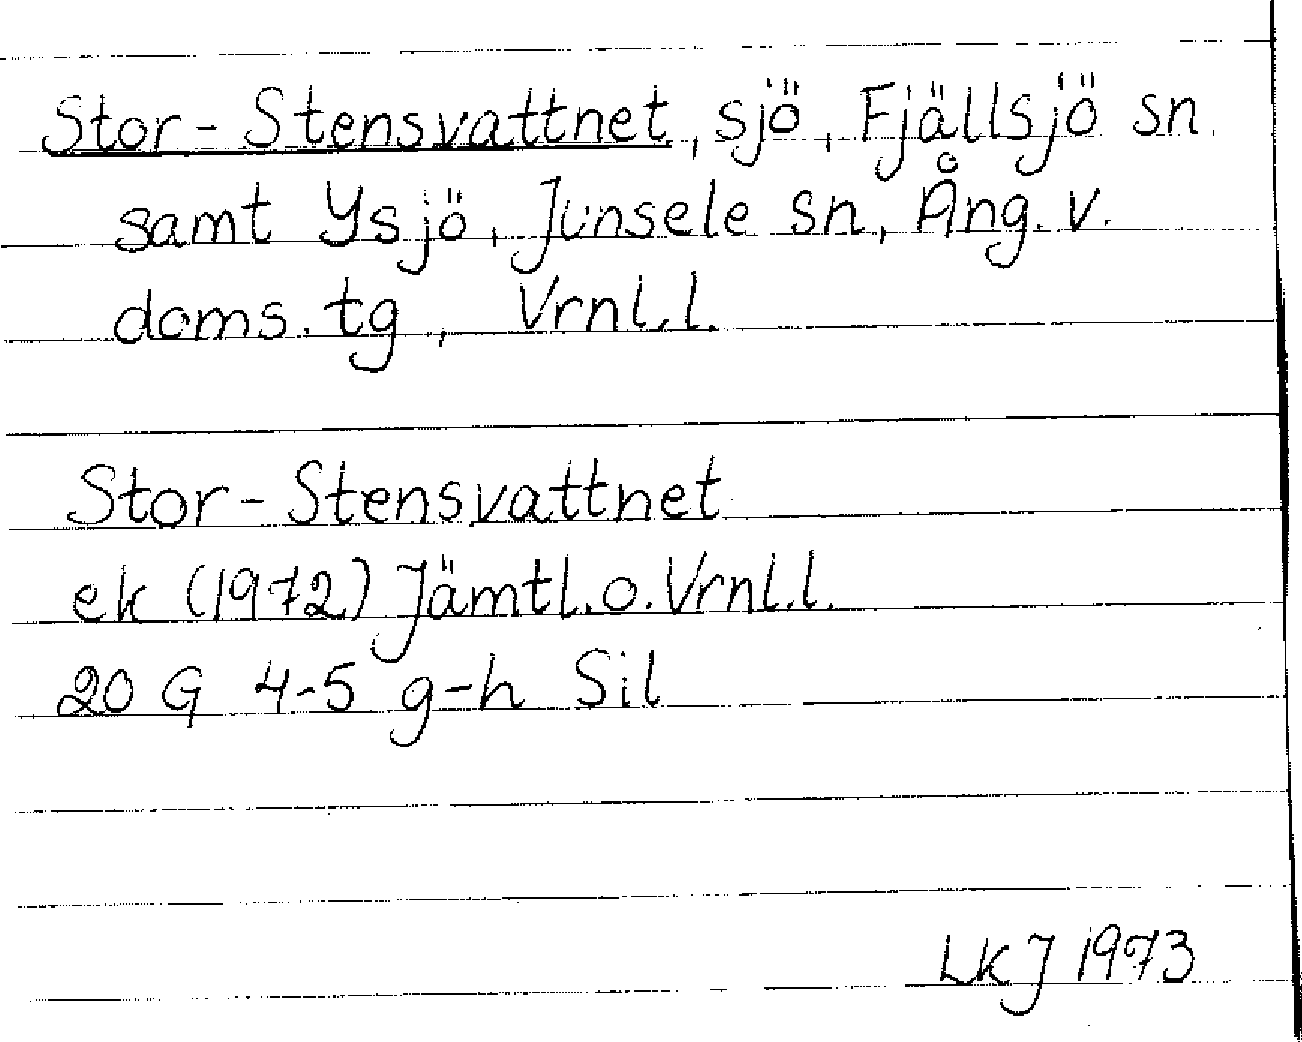 Stor-Stensvattnet, sjö, Fjällsjö sn
samt Ysjö, Junsele sn, Ång. v.
doms. tg, Vrnl.l.
Stor-Stensvattnet
ek (1972) Jämtl.o.Vrnl.l.
20 G 4-5 g-h Sil
LKJ 1973